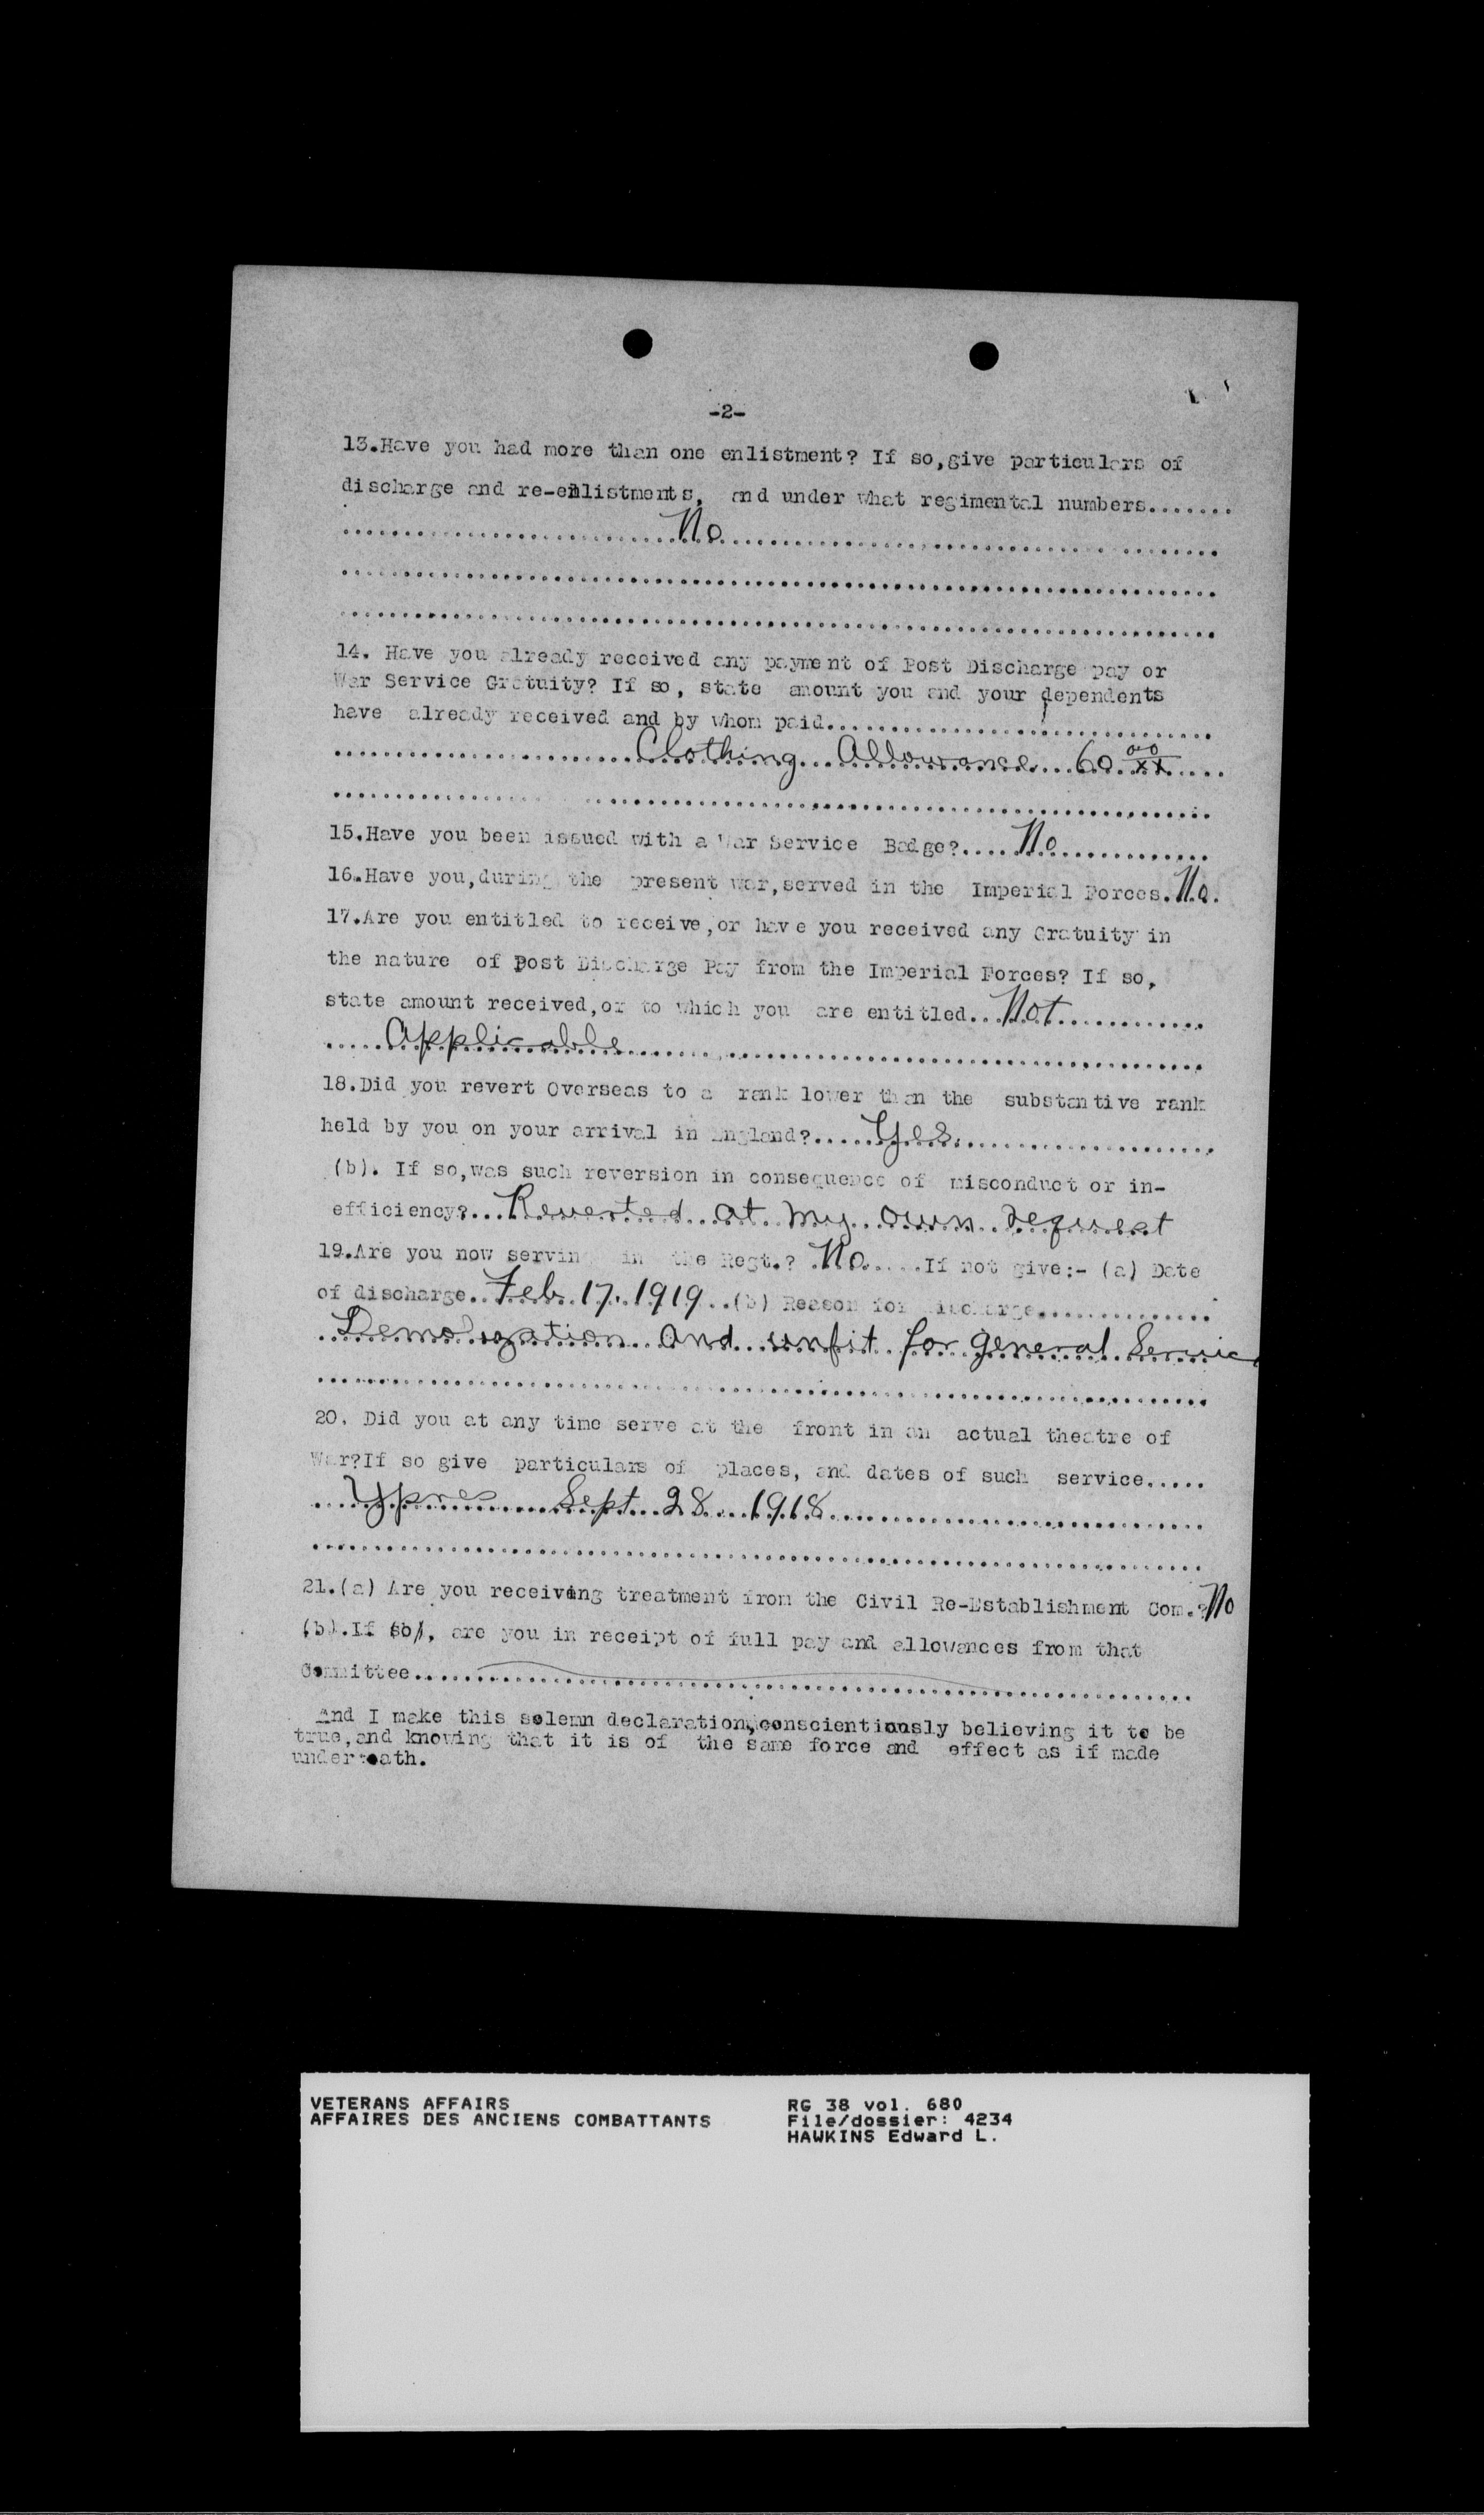 -2-
13.Have you had more than one enlistment? If so,give particulars of
discharge and re-enlistments, and under what regimental numbers.......
No
14. Have you already received any payment of Post Discharge pay or
War Service Gratuity? If so, state amount you and your dependents
have already received and by whom paid..............................
Clothing Allowance 60 00/xx
15.Have you been issued with a War Service Badge?....No.............
16.Have you,during the present war,served in the Imperial Forces.No.
17.Are you entitled to receive,or have you received any Gratuity in
the nature of Post Discharge Pay from the Imperial Forces? If so,
state amount received,or to which you are entitled...Not............
Applicable
18.Did you revert Overseas to a rank lower than the substantive rank
held by you on your arrival in England?.....Yes.....................
(b). If so,was such reversion in consequence of misconduct or in-
efficiency?...Reverted at my own request
19.Are you now serving in the Regt.? .No.....If not give:- (a) Date
of discharge..Feb. 17. 1919..(b) Reason for discharge..............
Demobization and unfit for general Service
20. Did you at any time serve at the front in an actual theatre of
War?If so give particulars of places, and dates of such service.....
Ypres Sept 28 1918
21.(a) Are you receiving treatment from the Civil Re-Establishment Com.?No
(b).If so, are you in receipt of full pay and allowances from that
Committee..........................................................
And I make this solemn declaration,conscientiously believing it to be
true,and knowing that it is of the same force and effect as if made
under oath.
VETERANS AFFAIRS RG 38 vol. 680
AFFAIRES DES ANCIENS COMBATTANTS File/dossier: 4234
HAWKINS Edward L.